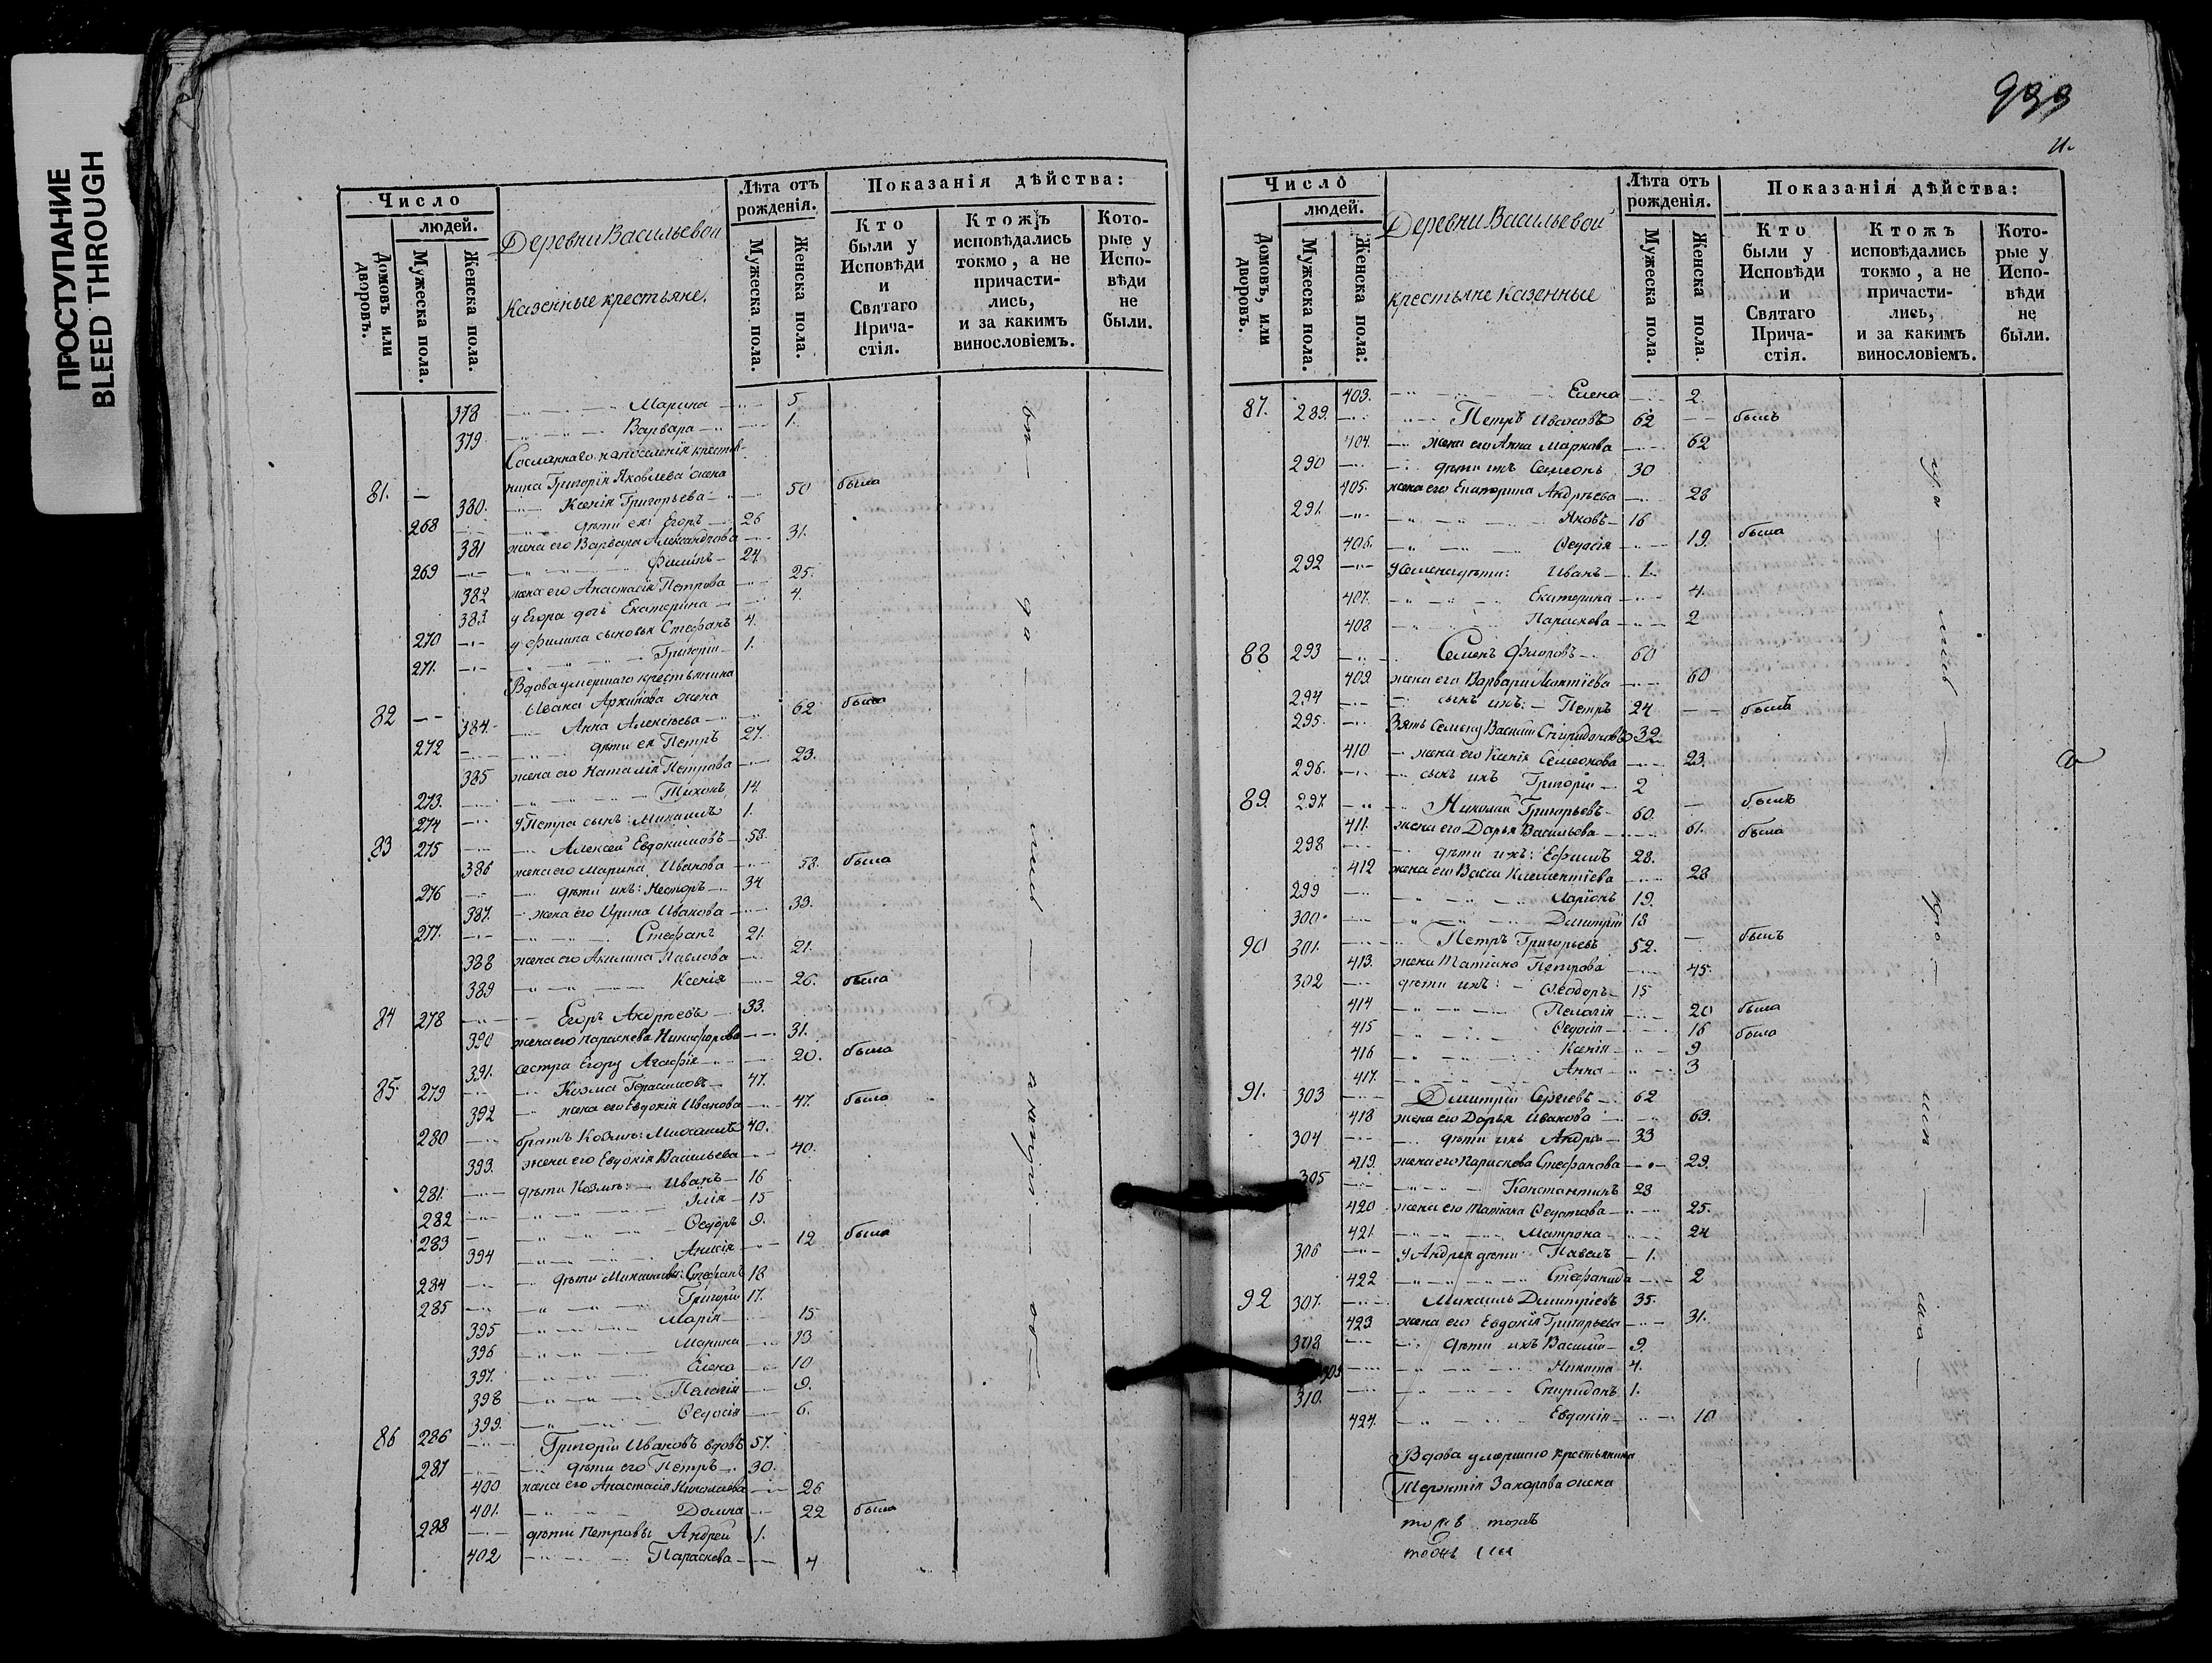 ПРОСТУПАНИЕ
BLEED THROUGH
Число
людей.
Домовъ или дворовъ.
Мужеска пола.
Женска пола.
Деревни Васильевой
Казенные крестьяне.
Лѣта отъ рожденія.
Мужеска пола.
Женска пола.
Показанія дѣйства:
Кто были у Исповѣди и Святаго Причастія.
Ктожъ исповѣдались токмо, а не причастились, и за какимъ винословіемъ.
Которые у Исповѣди не были.
378 Марина 5
379 Варвара 1.
Сосланнаго на поселенія крестья-
нина Григорія Яковлева жена
81. 380. Ксенія Григорьева 50 была
268 дѣти ея Егоръ 26
381 жена его Варвара Александрова 31.
269 Филипъ 24
382 жена его Анастасія Петрова 25.
383 у Егора дочь Екатерина 4.
270 у Филипа сыновья Стефанъ 4.
271. Григорій 1.
Вдова умершаго крестьянина
Ивана Архипова жена
82 384. Анна Алексѣева 62 была
272 дѣти ея Петръ 27.
385 жена его Наталія Петрова 23.
273. Тихонъ 14.
274 У Петра сынъ: Михаилъ 1.
83 275 Алексей Евдокимовъ 58.
386 жена его Марина Иванова 58. была
276 дѣти ихъ: Несторъ 34
387. жена его Ирина Иванова 33.
277. Стефанъ 21.
388 жена его Акилина Павлова 21.
389 Ксенія 26. была
84 278 Егоръ Андреевъ 33.
390 жена его Параскева Никифорова 31.
391. сестра Егору Агафія 20. была
85. 279 Козма Герасимовъ 47.
392 жена его Евдокія Иванова 47. была
280 братъ Козмѣ: Михаилъ 40.
393. жена его Евдокія Васильева 40.
281. дѣти Козмы: Иванъ 16
282 Илія 15
283 Ѳедоръ 9.
394 Анисія 12 была
284 дѣти Михаиловы: Стефанъ 18
285 Григорій 17.
395 Марія 15
396 Марина 13
397. Елена 10
398 Пелагія 9.
399. Ѳедосія 6.
86 286 Григорій Ивановъ вдовъ 57.
287 дѣти его Петръ 30.
400 жена его Анастасія Николаева 26
401. Домна 22 была
288 дѣти Петровы Андрей 1.
402 Параскева 4
Число
людей.
Домовъ, или дворовъ.
Мужеска пола.
Женска пола:
Деревни Васильевой
крестьяне Казенные
Лѣта отъ рожденія.
Мужеска пола.
Женска пола.
Показанія дѣйства:
Кто были у Исповѣди и Святаго Причастія.
Ктожъ исповѣдались токмо, а не причастились, и за какимъ винословіемъ.
Которые у Исповѣди не были.
403. Елена 2.
87. 289. Петръ Ивановъ 62 былъ
404. жена его Анна Маркова 62
290 дѣти ихъ Семіонъ 30
405. жена его Екатерина Андрѣева 28
291. Яковъ 16
406. Ѳедосія 19. была
292 у Семена дѣти: Иванъ 1.
407. Екатерина 4.
408 Параскева 2
88 293 Семенъ Фроловъ 60
409. жена его Варвара 60
294 сынъ ихъ: Петръ 24 былъ
295. Зять Семену Василій Спиридоновъ 32
410 жена его Ксенія Семеонова 23.
296. сынъ ихъ Григорій 2
89. 297. Николай Григорьевъ 60. былъ
411. жена его Дарья Васильева 61. была
298 дѣти ихъ: Ефимъ 28.
412 жена его Васса Клементіева 28
299 Ларіонъ 19.
300. Димитрій 18
90 301. Петръ Григорьевъ 52. былъ
413. жена Татіана Петрова 45.
302 дѣти ихъ: Ѳеодоръ 15
414 Пелагія 20 была
415 Ѳедосія 16 была
416 Ксенія 9
417. Анна 3
91. 303 Димитрій Сергіевъ 62
418 жена его Дарья Иванова 63.
304 дѣти ихъ Андрей 33
419. жена его Параскева Стефанова 29.
305 Константинъ 23
420 жена его Татіана Ѳедотова 25.
421. Матрона 24
306 У Андрея дѣти Павелъ 1.
422 Стефанида 2
92 307. Михаилъ Димитріевъ 35.
423 жена его Евдокія Григорьева 31.
308 дѣти ихъ Василій 9.
309 Никита 4.
310. Спиридонъ 1.
424. Евдокія 10
Вдова умершаго крестьянина
Терентія Захарова жена